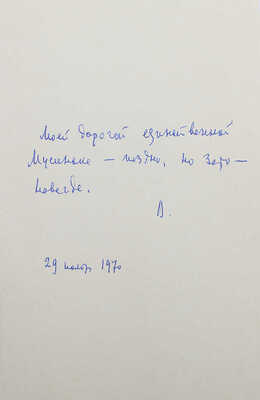 Моей дорогой единственной
Мусиньке – поздно, но зато –
навсегда.
В.
29 ноябр 1970